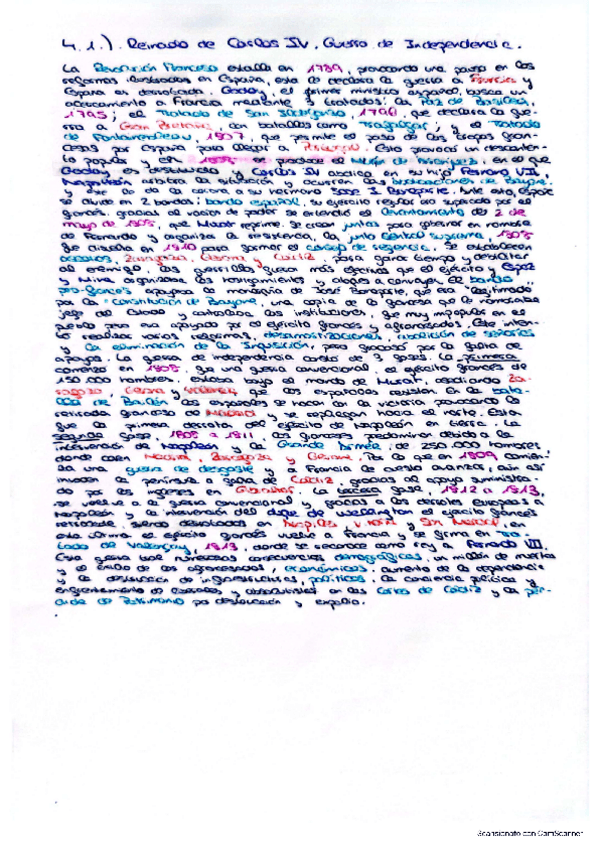 4.1.). Reinado de Carlos IV. Guerra de Independencia.
La Revolución Francesa estalla en 1789, provocando una pausa en las
reformas ilustradas en España, esta le declara la guerra a Francia y
España es derrotada. Godoy, el primer ministro español, busca un
acercamiento a Francia mediante 3 tratados: la Paz de Basilea,
1795; el Tratado de San Ildefonso, que declara la gue-
rra a Gran Bretaña, con batallas como Trafalgar; y el Tratado
de Fontainebleau, 1807, que permite el paso de las tropas fran-
cesas por España para llegar a Portugal. Esto provocó un desconten-
to popular y en se produce el Motín de Aranjuez, en el que
Godoy es destituido y Carlos IV abdica en su hijo Fernando VII.
Napoleón arbitra la situación y ocurren las abdicaciones de Bayona
y este da la corona a su hermano José I Bonaparte. Ante esto, España
se divide en 2 bandos: bando español, su ejército regular era superado por el
francés, gracias al vacío de poder se extendió el levantamiento del 2 de
mayo de 1808, que hubo régimen. Se crean juntas para gobernar en nombre
de Fernando y organizar la resistencia, la junta central suprema, 1808
se disuelve en 1810 para formar el consejo de regencia. Se establecen
Zaragoza, Gerona y Cádiz, para ganar tiempo y debilitar
al enemigo, las guerrillas fueron más efectivas que el ejército y Espoz
y Mina organizaba los y atacaba a convoyes. El bando
pro-francés apoyaba la monarquía de José Bonaparte, que era legitimado
por la "Constitución de Bayona", una copia de la francesa que le nombraba
jefe del Estado y controlaba las instituciones, fue muy impopular en el
pueblo pero era apoyado por el ejército francés y afrancesados. Este inten-
tó realizar varias reformas, desamortizaciones, abolición de señoríos
y la eliminación de la Inquisición, pero fracasó por la falta de
apoyos. La guerra de independencia consta de 3 fases. La primera
comenzó en 1808, fue una guerra convencional, el ejército francés de
150.000 hombres, estaba bajo el mando de Murat, asediando Za-
ragoza, Gerona y Valencia, que los españoles resisten. En la bata-
lla de Bailén los españoles se hacen con la victoria provocando la
retirada francesa de Madrid y se repliegan hacia el norte. Esta
fue la primera derrota del ejército de Napoleón en tierra. La
segunda fase, 1808 a 1811, los franceses predominan debido a la
intervención de Napoleón y la Grande Armée, de 250.000 hombres,
donde caen Madrid, Zaragoza y Gerona. Por lo que en 1809 comien-
za una guerra de desgaste y a Francia le cuesta avanzar, aún así
invaden la península a falta de Cádiz, gracias al apoyo suministra-
do por los ingleses en Gibraltar. La tercera fase, 1812 a 1813,
se vuelve a la guerra convencional y gracias a las derrotas europeas de
Napoleón y la intervención del duque de Wellington el ejército francés
retrocede, siendo derrotados en Arapiles, Vitoria y San Marcial, en
esta última el ejército francés vuelve a Francia y se firma en tra-
tado de Valençay, 1813, donde se reconoce como rey a Fernando VII.
Esta guerra tuvo numerosas consecuencias demográficas, un millón de muertes
y el exilio de los afrancesados, económicas, aumento de la dependencia
y la destrucción de infraestructuras, políticas, la conciencia política y
enfrentamiento de liberales y absolutistas en las Cortes de Cádiz y la pér-
dida de Patrimonio por destrucción y expolio.
Scansionato con CamScanner